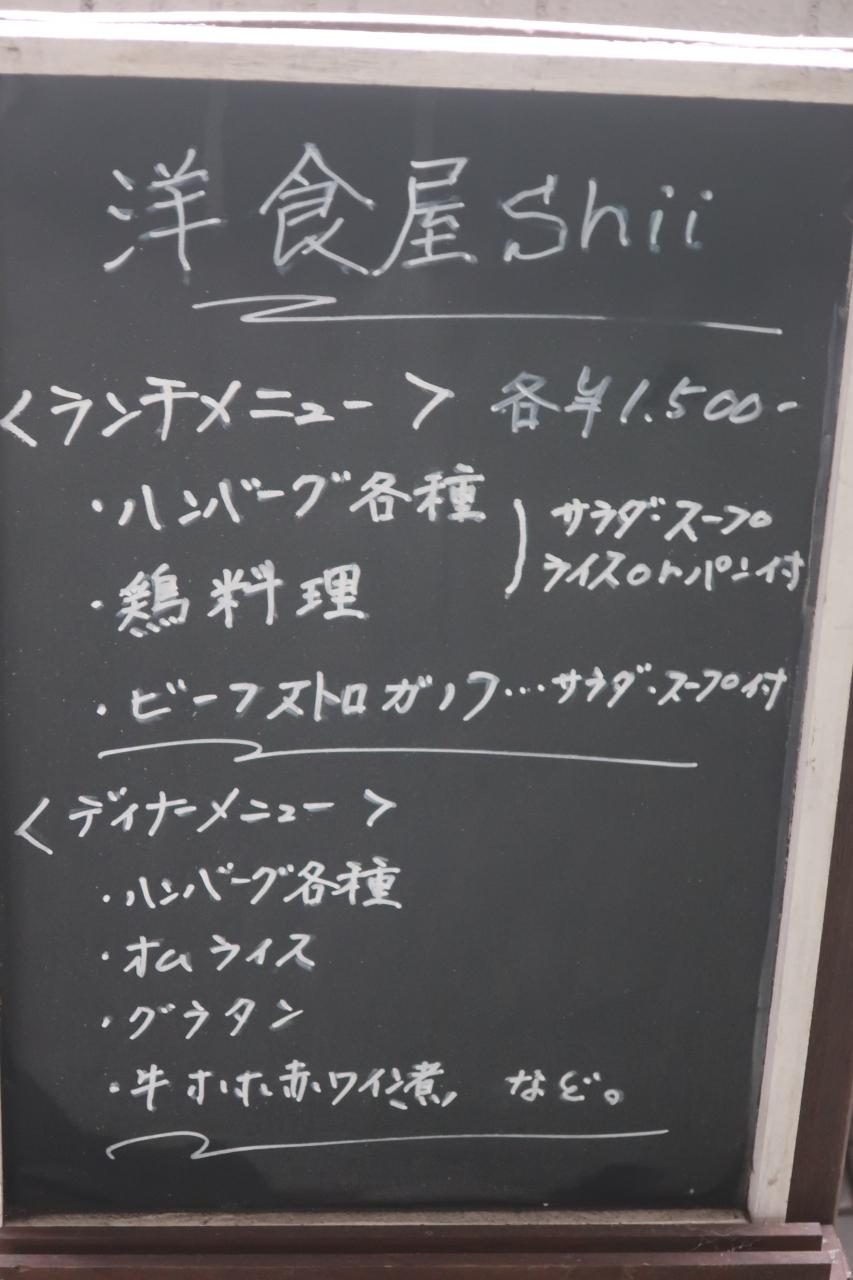 洋食屋Shii
<ランチメニュー> 各¥1.500-
・ハンバーグ各種
サラダ・スープ
ライスorパン付
・鶏料理
・ビーフストロガノフ…サラダ・スープ付
<ディナーメニュー>
・ハンバーグ各種
・オムライス
・グラタン
・牛ホホ赤ワイン煮, など。